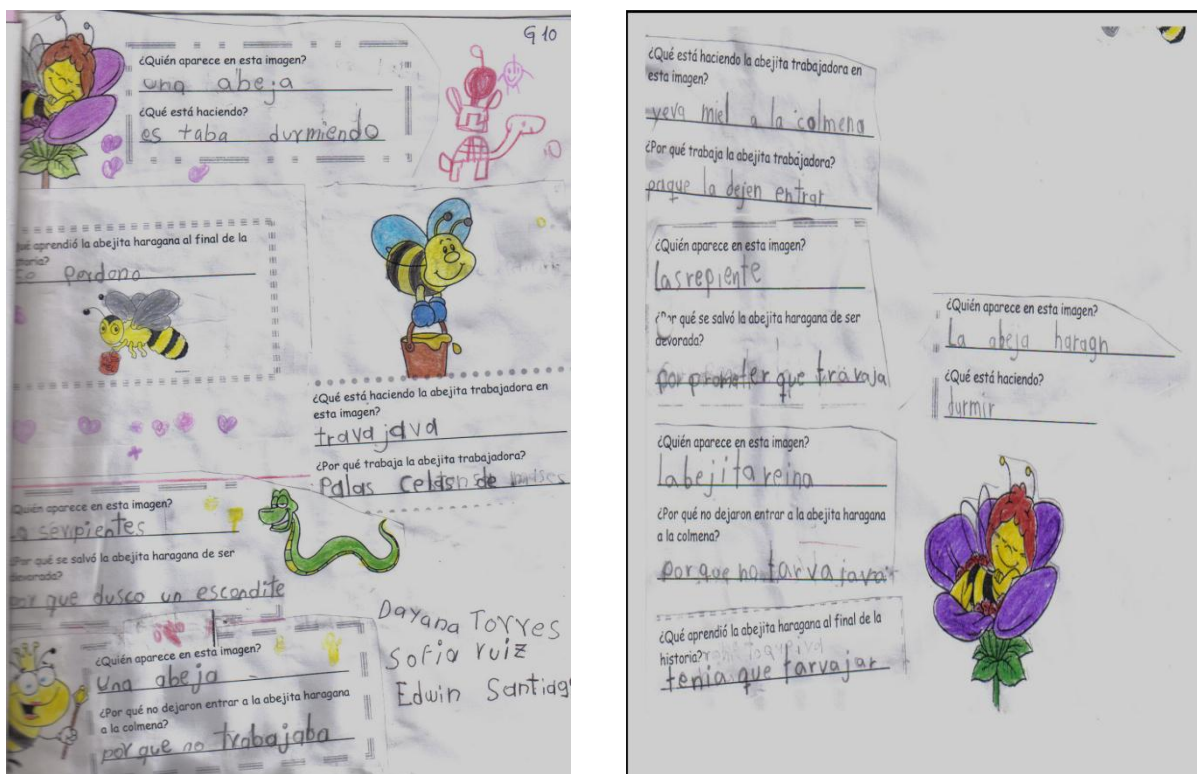 G 10
¿Quién aparece en esta imagen?
una abeja
¿Qué está haciendo?
es taba durmiendo
aprendió la abejita haragana al final de la
perdono
¿Qué está haciendo la abejita trabajadora en
esta imagen?
trava java
¿Por qué trabaja la abejita trabajadora?
Palas celdas de
¿Quién aparece en esta imagen?
serpientes
¿Por qué se salvó la abejita haragana de ser
devorada?
por que dusco un escondite
¿Quién aparece en esta imagen?
una abeja
¿Por qué no dejaron entrar a la abejita haragana
a la colmena?
por que no trabajaba
Dayana Torres
Sofia ruiz
Edwin Santiag
¿Qué está haciendo la abejita trabajadora en
esta imagen?
yeva miel a la colmena
¿Por qué trabaja la abejita trabajadora?
paque la dejen entrar
¿Quién aparece en esta imagen?
Lasrepiente
¿Por qué se salvó la abejita haragana de ser
devorada?
por prometer que travaja
¿Quién aparece en esta imagen?
Labejita reina
¿Por qué no dejaron entrar a la abejita haragana
a la colmena?
por que no tarvajava
¿Qué aprendió la abejita haragana al final de la
historia?
tenia que tarvajar
¿Quién aparece en esta imagen?
La abeja haragn
¿Qué está haciendo?
durmir